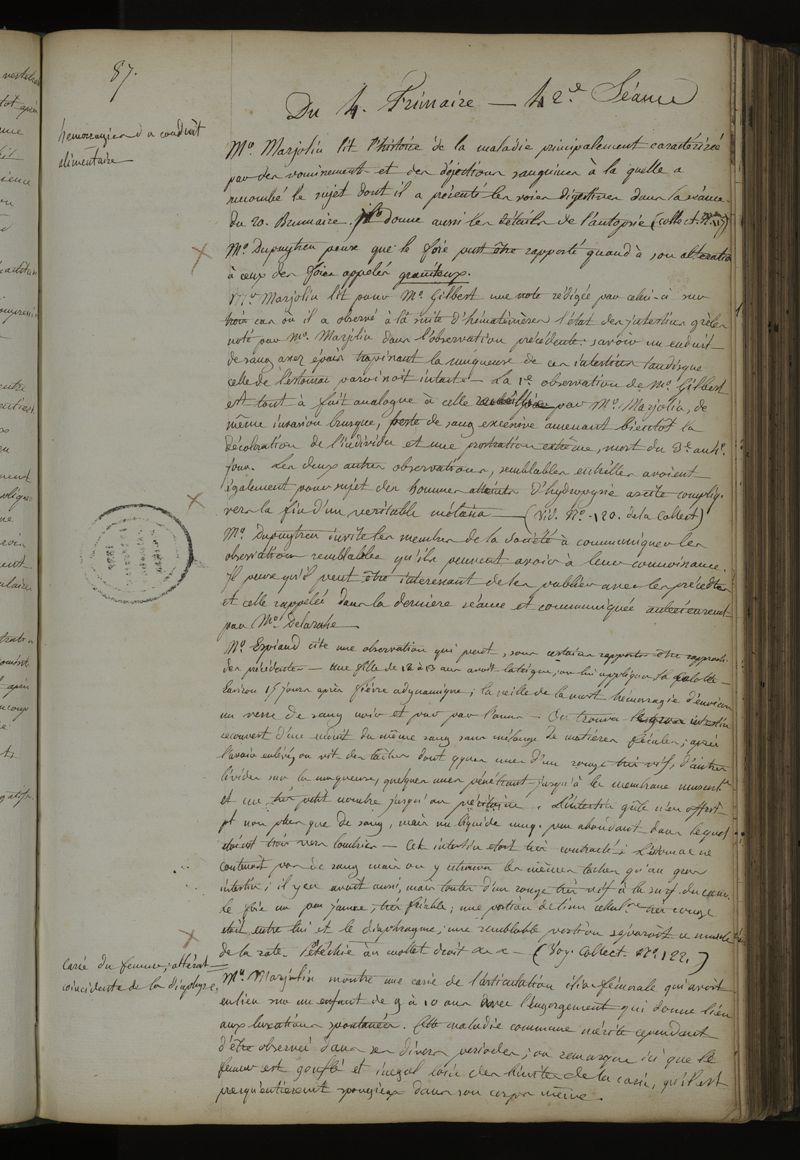 87.
Du 4. Frimaire — 42e Séance
hemorragies du conduit
alimentaire
Mr. Marjolin lit l'histoire de la maladie principalement caractérisée
par des vomissement et des déjections sanguines à la quelle a
succombé le sujet dont il a présenté les voies digestives dans la séance
du 20. Brumaire. il donne aussi les détails de l'autopsie (collect. No 117)
Mr. Dupuytren pense que le foie peut être rapporté quand à son altération
à ceux des foies appelés graniteux.
Mr Marjolin lit pour Mr. Gilbert une note rédigée par celui-ci sur
trois cas où il a observé à la suite d'hématémèses l'état des intestins grêles
noté par Mr. Marjolin dans l'observation précédente: savoir un enduit
de sang assez épais tapissant la muqueuse de ces intestins tandisque
celle de l'estomac paroissoit intacte — La 1re observation de Mr. Gilbert
est tout à fait analogue à celle par Mr. Marjolin, de
même invasion brusque, perte de sang excessive amenant bientôt la
décoloration de l'individu et une prostration extrême, mort du 3e au 4e
jour. Les deux autres observations, semblables entr'elles avoient
également pour sujet des hommes attaints d'hydropysie ascite compliq.
vers la fin d'un veritable mélæna — (Vid. No. 120. de la Collect)
Mr. Dupuytren invite les membres de la Société à communiquer les
observations semblables qu'ils peuvent avoir à leur connoissance.
Il pense qu'il peut être interessant de les publier avec les précédtes
et celle rappelée dans la derniere séance et communiquée anterieurement
par Mr. Delaroche
Mr. Espiaud cite une observation qui peut, sous certains rapports être rapproch.
des précédentes — une fille de 12 à 13 ans avoit la teigne; on lui appliqua la calotte —
Environ 15 jours après fièvre adynamique; la veille de la mort hémorragie d'environ
un verre de sang noir et pur par l'anus — On trouva le gros intestin
recouvert d'une enduit du même sang sans mélange de matières fécales; après
l'avoir enlevé, on vit des taches dont qques unes d'un rouge très vif, d'autres
livides sur la muqueuse, quelques unes pénétrant jusqu'à la membrane muscul.re
et un très petit nombre jusqu'au péritoine. L'intestin grêle n'en offroit
pt non plus que de sang, mais un liquide muq. peu abondant dans lequel
étoient trois vers lombrics — Cet intestin étoit très contracté; L'estomac ne
contenoit pas de sang mais on y retrouva les mêmes taches qu'au gros
intestin; il y en avait aussi, mais toutes d'un rouge très vif à la surf. du cœur.
le foie un peu jaune, très friable; une portion de tissu cellul.re très rouge
étoit entre lui et le diaphragme; une semblable portion séparoit ce muscle
de la rate. Pétéchie au mollet droit &c &c — (Voy. Collect. No 122.)
Carie du femur; altérat—
coincidente de la diaphyse,
Mr. Marjolin montre une carie de l'articulation ilio-fémorale qui avoit
eu lieu sur un enfant de 9 à 10 ans avec l'engorgement qui donne lieu
aux luxations spontanées. Cette maladie commune mérite cependant
d'être observée dans ses divers periodes; on remarque ici que le
femur est gonflé et inégal loin des limites de la carie, qu'il est
presqu'entierement spongieux dans son corps même.